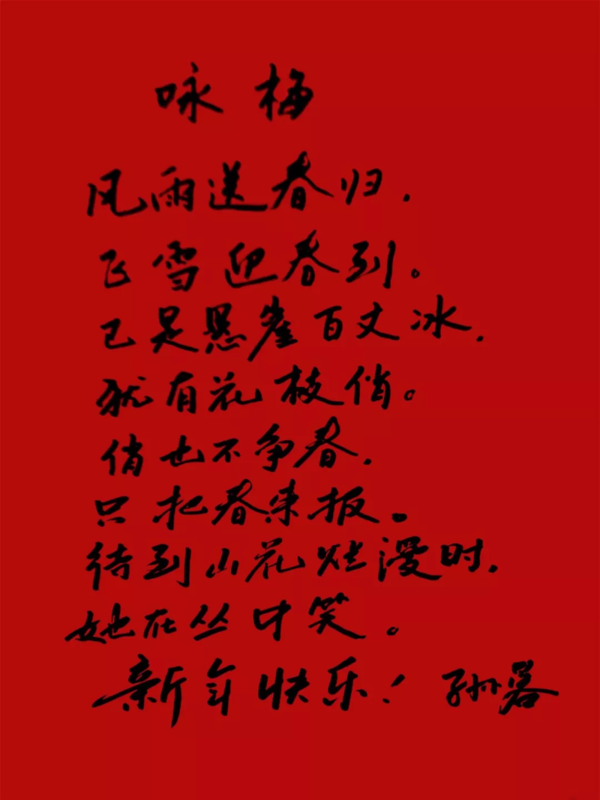 咏梅
风雨送春归，
飞雪迎春到。
已是悬崖百丈冰，
犹有花枝俏。
俏也不争春，
只把春来报。
待到山花烂漫时，
她在丛中笑。
新年快乐！